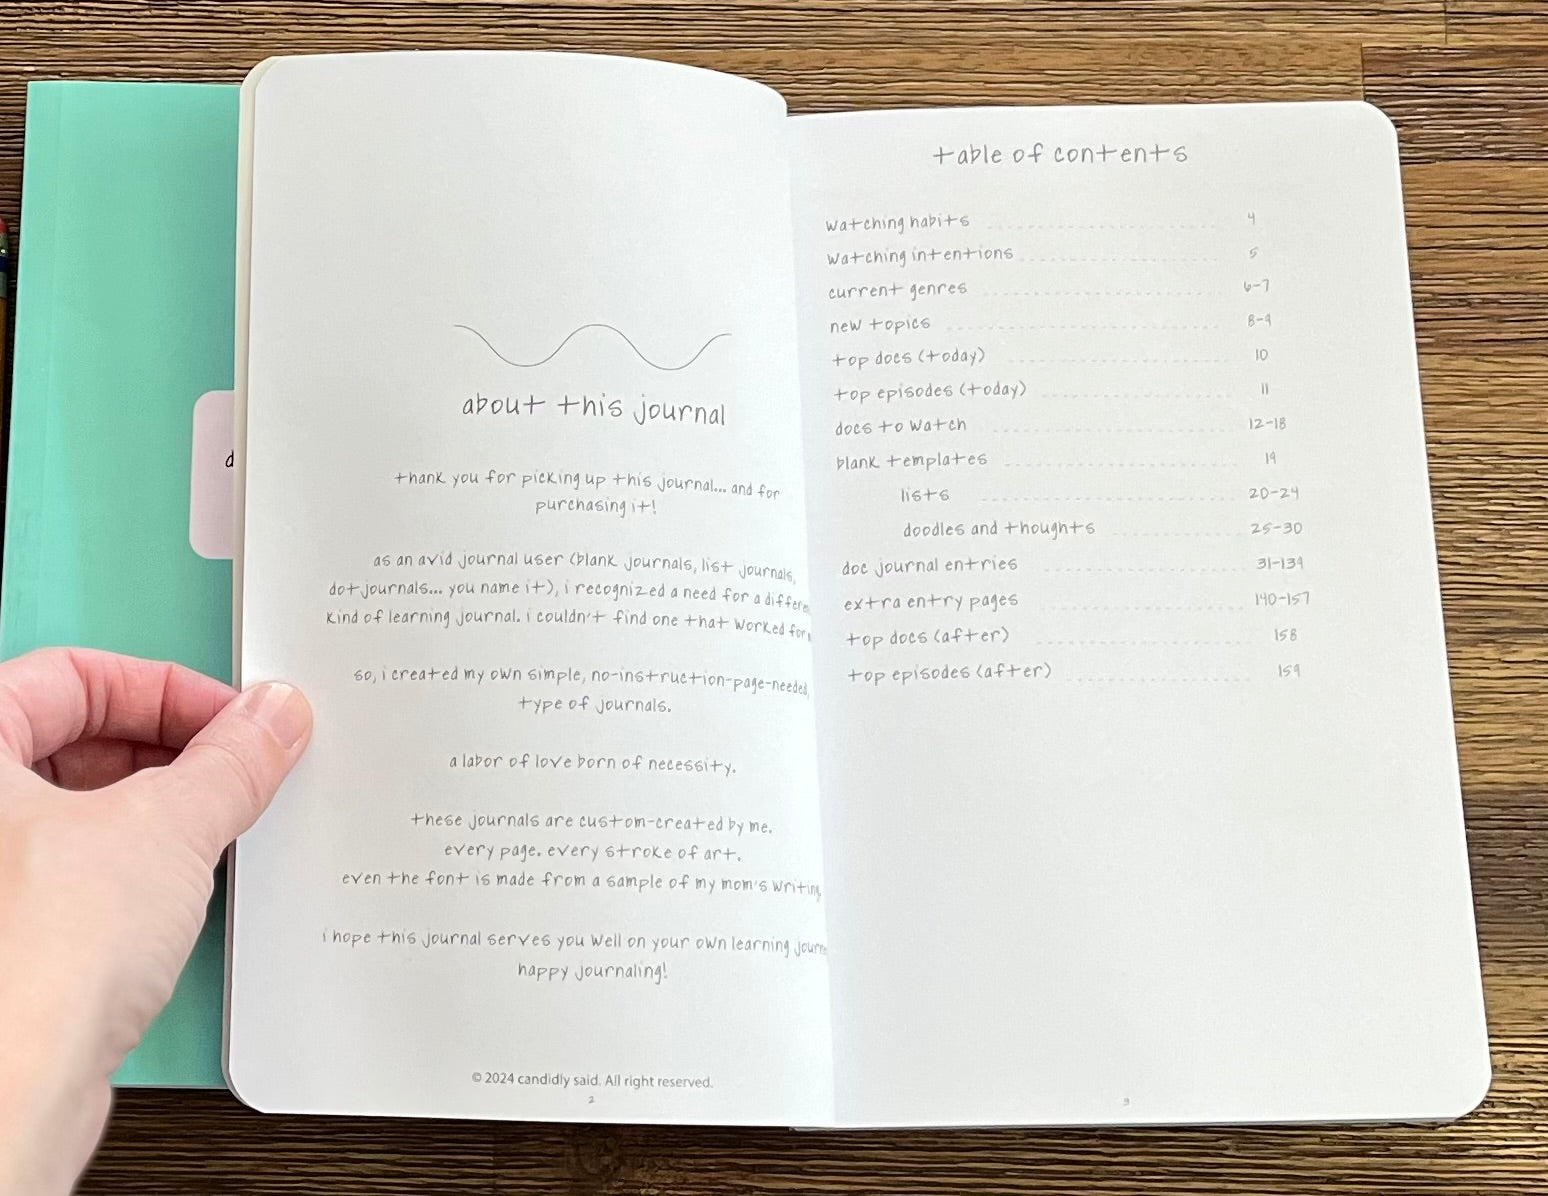 d
about this journal
thank you for picking up this journal... and for
purchasing it!
as an avid journal user (blank journals, list journals,
dot journals... you name it), i recognized a need for a
kind of learning journal. i couldn't find one that worked for
so, i created my own simple, no-instruction-page-needed,
type of journals.
a labor of love born of necessity.
these journals are custom-created by me.
every page. every stroke of art.
even the font is made from a sample of my mom's writing
i hope this journal serves you well on your own learning
happy journaling!
© 2024 candidly said. All right reserved.
2
table of contents
watching habits 4
watching intentions 5
current genres 6-7
new topics 8-9
top docs (today) 10
top episodes (today) 11
docs to watch 12-18
blank templates 19
lists 20-24
doodles and thoughts 25-30
doc journal entries 31-139
extra entry pages 140-157
top docs (after) 158
top episodes (after) 159
3